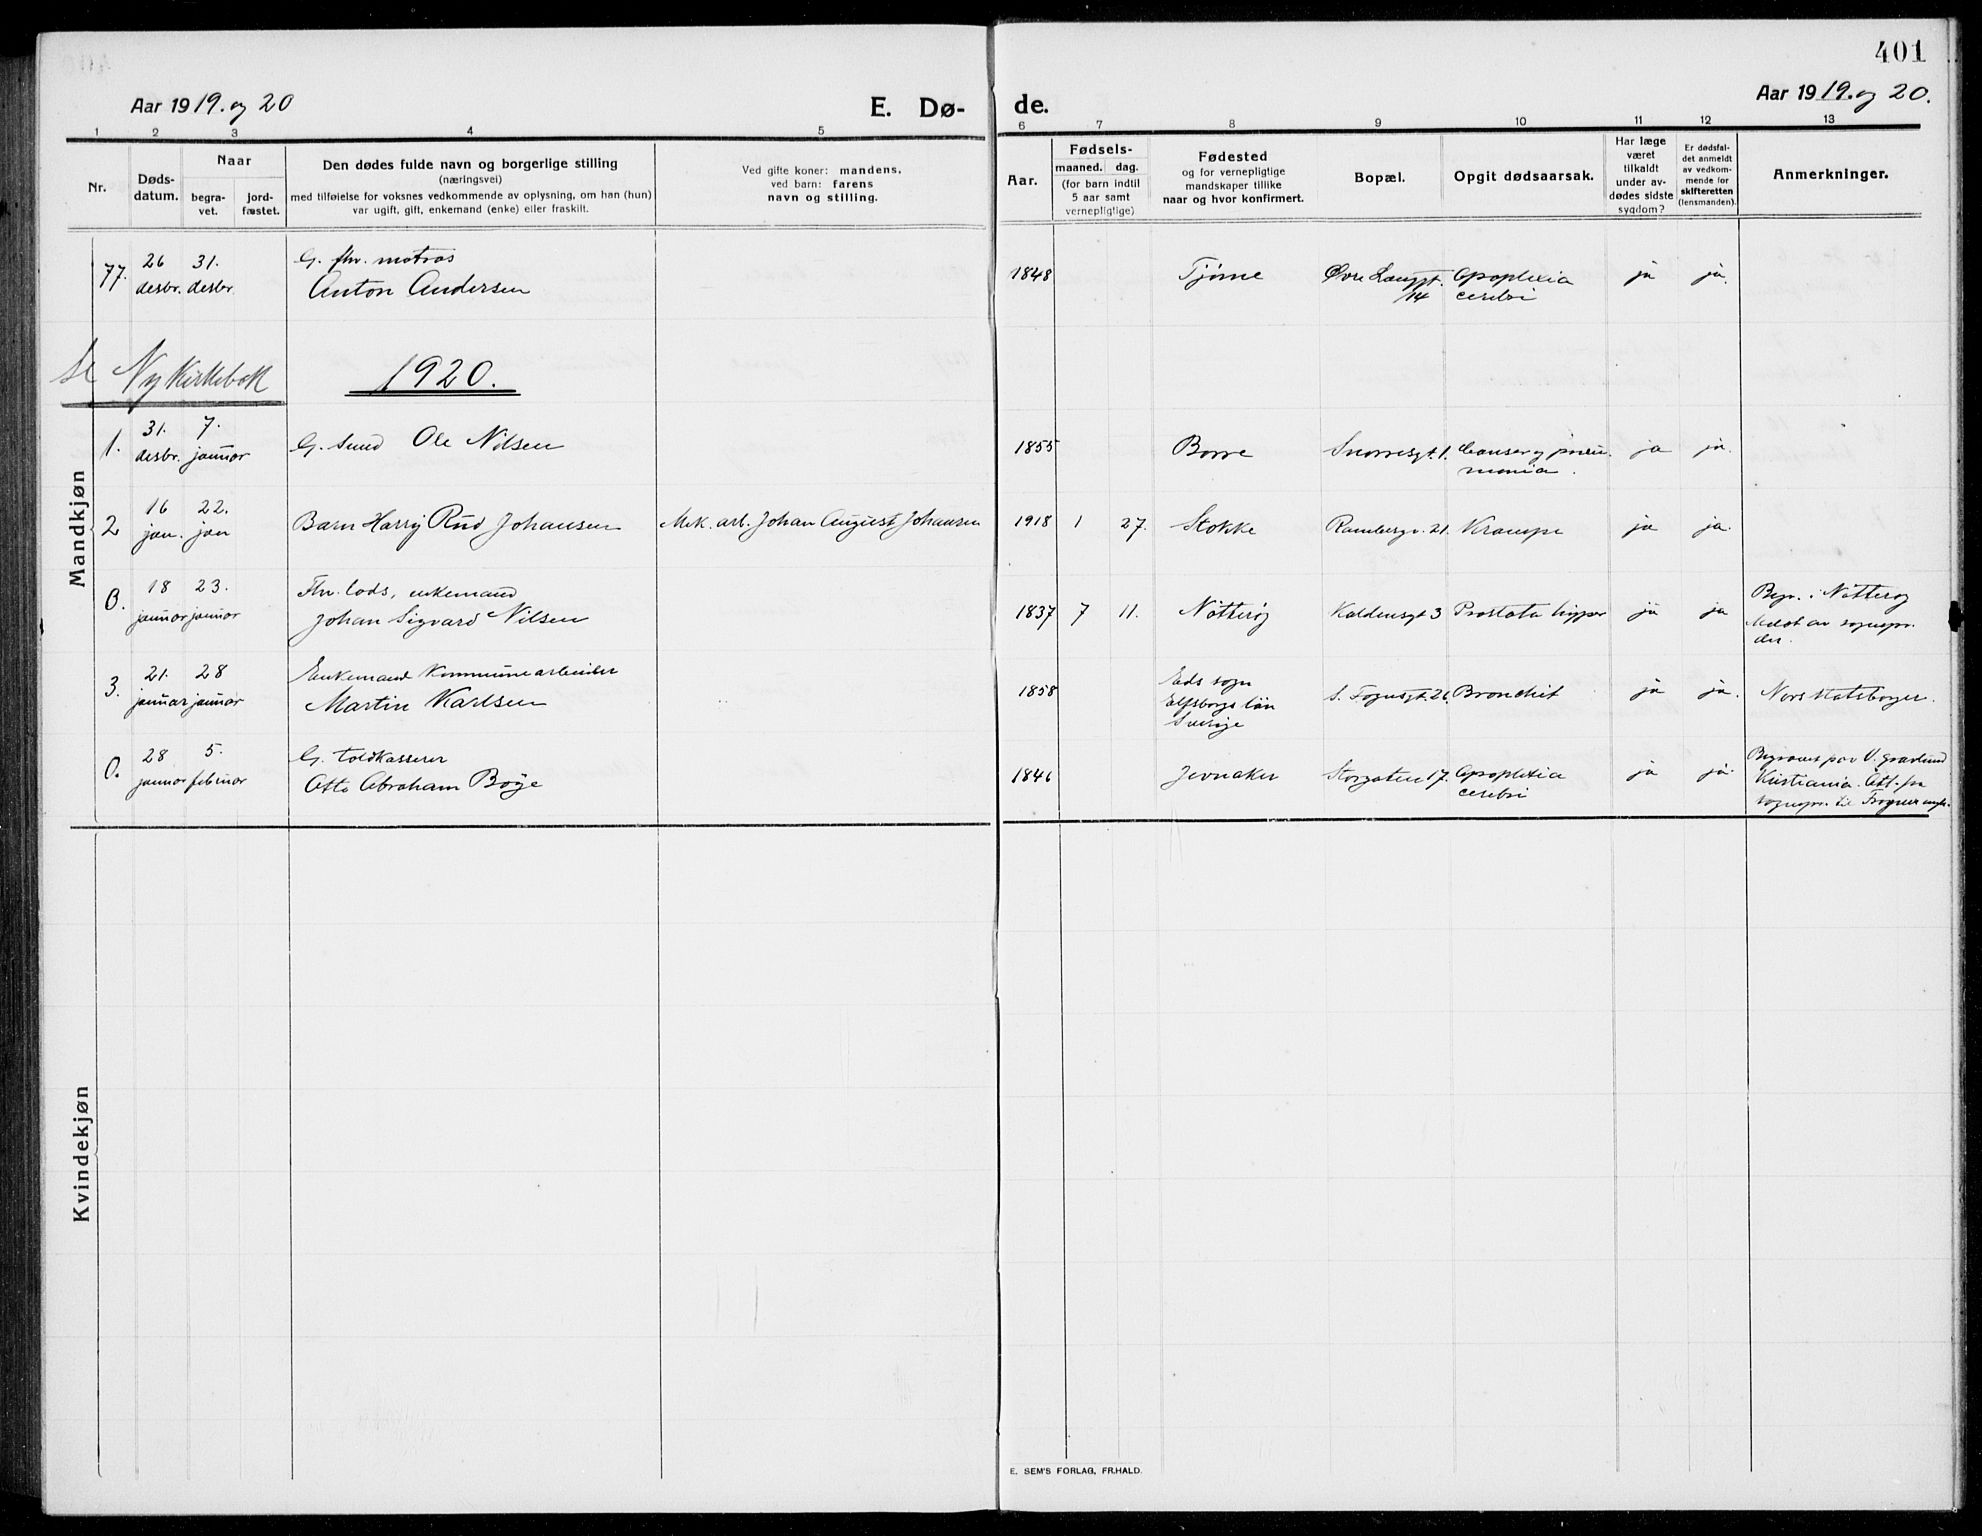 401
Aar 1919. og 20
E. Dø-
de.
Aar 1919. og 20.
1 2 3 4 5 6 7 8 9 10 11 12 13
Nr.
Døds-
datum.
Naar
begra-
vet.
jord-
fæstet.
Den dødes fulde navn og borgerlige stilling
(næringsvei)
med tilføielse for voksnes vedkommende av oplysning, om han (hun)
var ugift, gift, enkemand (enke) eller fraskilt.
Ved gifte koner: mandens,
ved barn: farens
navn og stilling.
Aar.
Fødsels-
maaned. dag.
(for barn indtil
5 aar samt
vernepligtige)
Fødested
og for vernepligtige
mandskaper tillike
naar og hvor konfirmert.
Bopæl.
Opgit dødsaarsak.
Har læge
været
tilkaldt
under av-
dødes sidste
sygdom?
Er dødsfal-
det anmeldt
av vedkom-
mende for
skifteretten
(lensmanden).
Anmerkninger.
77. 26 desbr. 31. desbr.
G. fhv. matros
Anton Andersen
1848 Tjøme Øvre Langgt. 14 Apoplexia
cerebri ja ja.
Se Ny Kirkebok
1920.
Mandkjøn
1. 31. desbr. 7. januar
G. Ole Nilsen
1855 Borre Snorresgt. 1. Canser og pneu-
monia. ja ja.
2 16 jan. 22. jan
Barn Harry Rud Johansen
Mek. arb. Johan August Johansen
1918 1 27. Stokke Rambergv. 21. Krampe ja ja.
0. 18 januar 23. januar
Fhv. lods, enkemand
Johan Sigvard Nilsen
1837 7 11. Nøtterøy Haldensgt 3 Prostata hyper ja ja
Begr. i Nøtterøy
Meldt av sognepr.
der.
3. 21. januar 28 januar
Enkemand Kommunearbeider
Martin Karlsen
1858 Eds sogn
Elfsborgs län
Sverige
S. Fognsgt. 26. Bronchit ja ja. Nors statsborger.
0. 28 januar 5. februar
G. toldkasserer
Otto Abraham Bøye
1846 Jevnaker Storgaten 17. Apoplexia
cerebri ja ja.
Begravet paa V. gravlund
Kristiania. Att. fra
sognepr. til Frogner
Kvindekjøn
E. SEM'S FORLAG, FR.HALD.